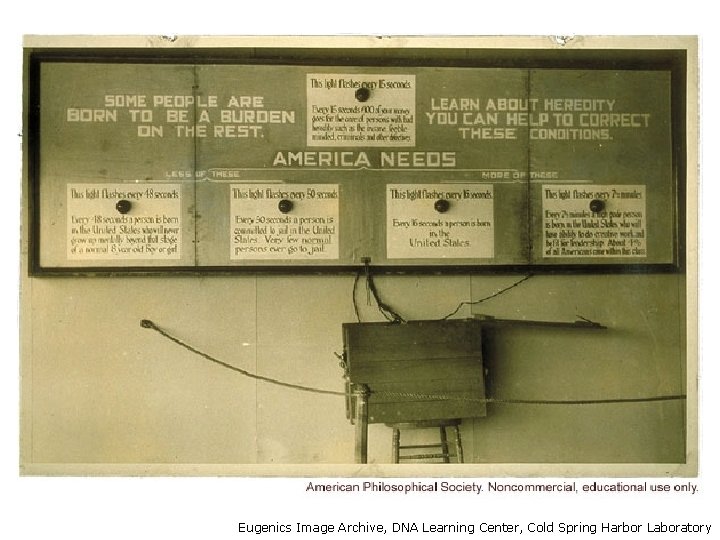 This light flashes every 15 seconds.
Every 15 seconds $100 of your money
goes for the care of persons with bad
heredity such as the insane, feeble-
minded, criminals and other defectives.
SOME PEOPLE ARE
BORN TO BE A BURDEN
ON THE REST.
LEARN ABOUT HEREDITY
YOU CAN HELP TO CORRECT
THESE CONDITIONS.
AMERICA NEEDS
LESS OF THESE
MORE OF THESE
This light flashes every 48 seconds
Every 48 seconds a person is born
in the United States who will never
grow up mentally beyond that stage
of a normal 8 year old boy or girl
This light flashes every 50 seconds
Every 50 seconds a person is
committed to jail in the United
States. Very few normal
persons ever go to jail.
This light flashes every 16 seconds.
Every 16 seconds a person is born
in the
United States.
This light flashes every 7½ minutes
Every 7½ minutes a high grade person
is born in the United States, who will
have ability to do creative work and
be fit for leadership. About 4%
of all Americans come within this class
American Philosophical Society. Noncommercial, educational use only.
Eugenics Image Archive, DNA Learning Center, Cold Spring Harbor Laboratory